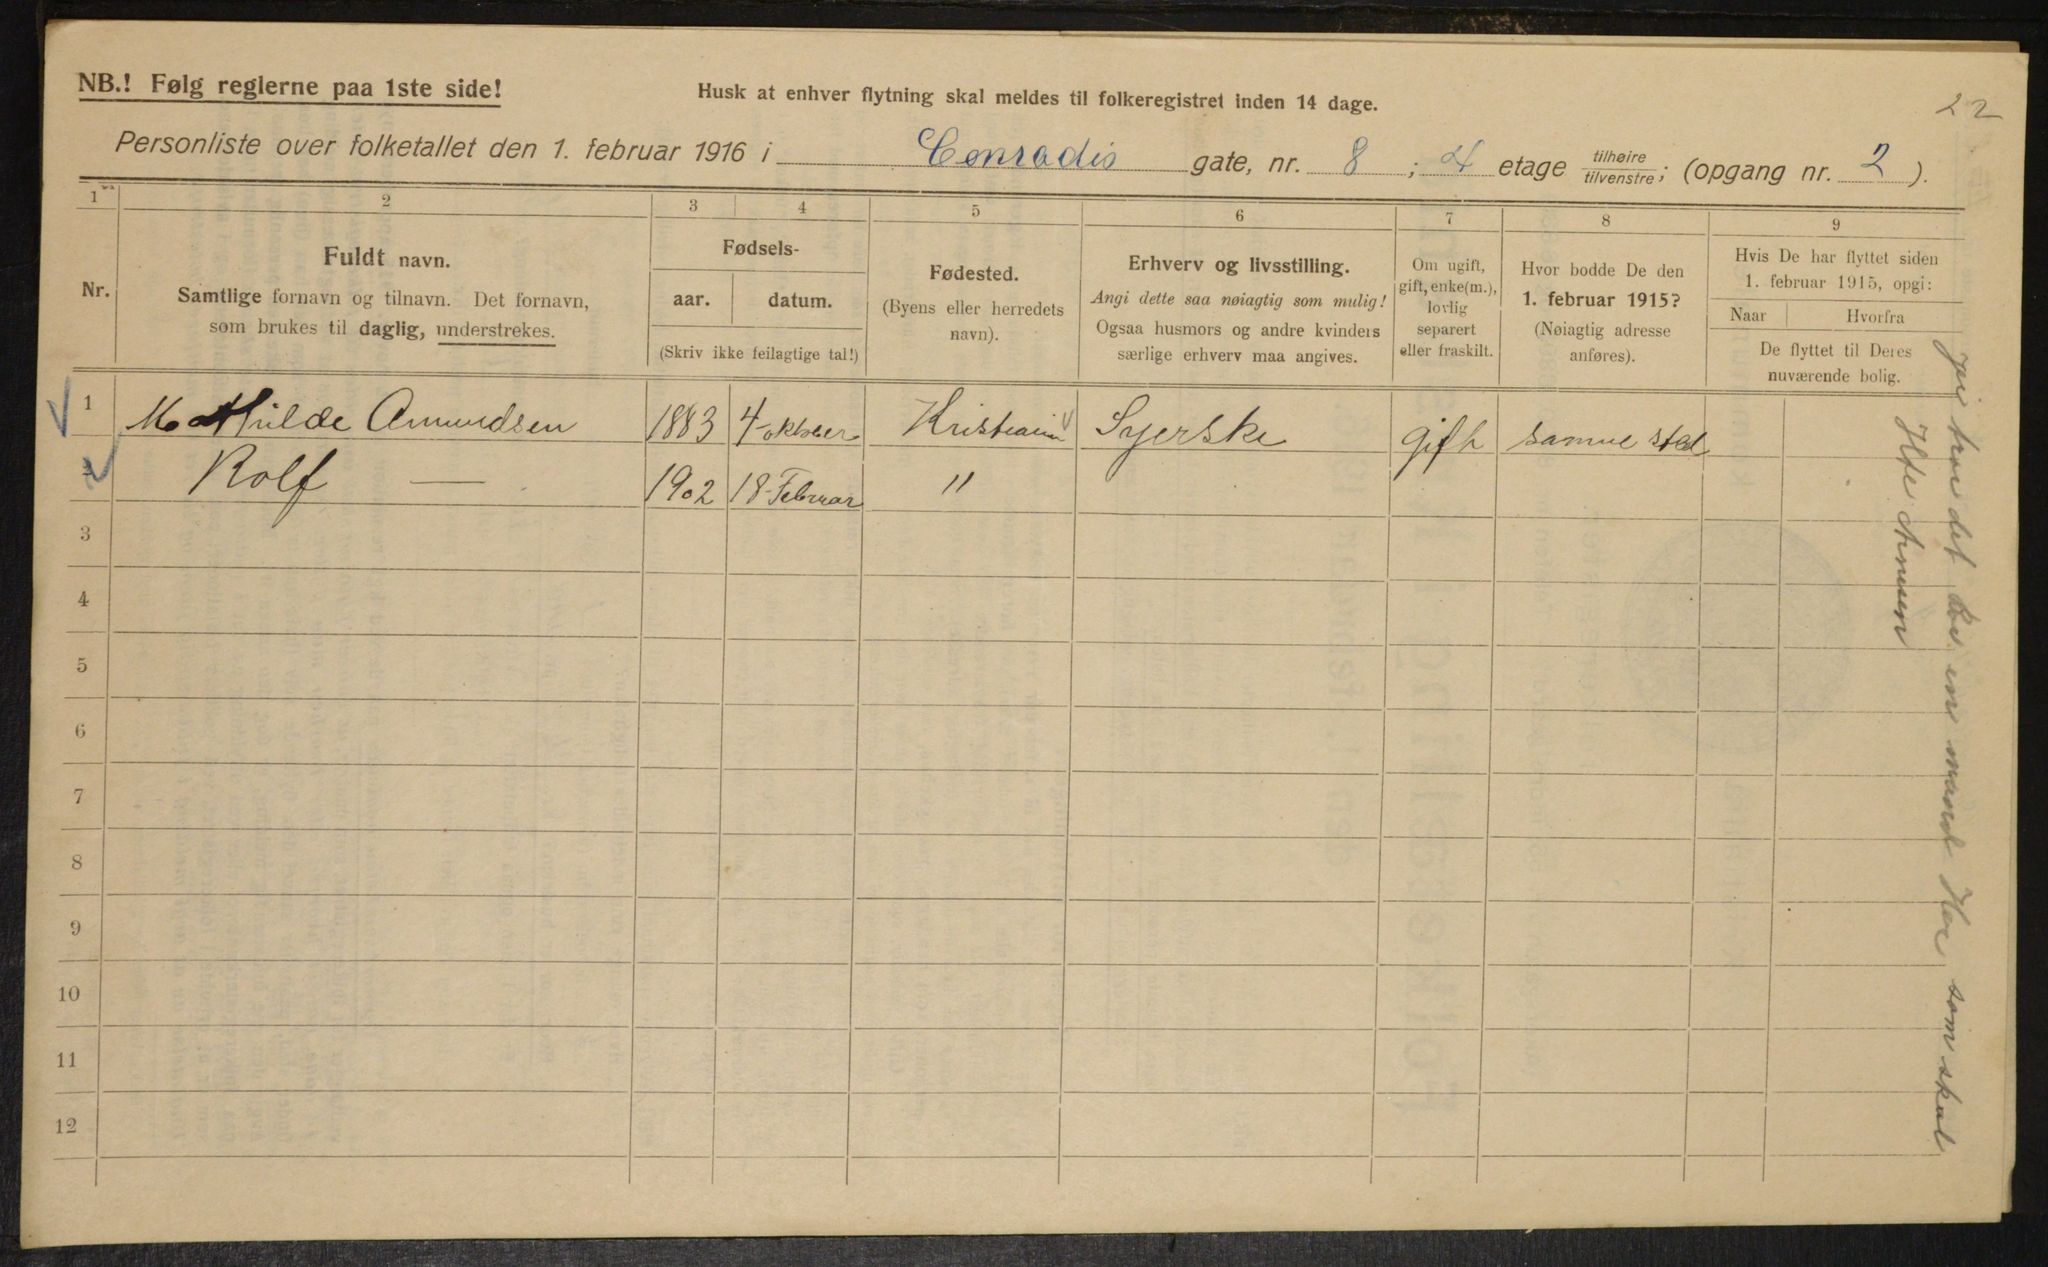 22
NB.! Følg reglerne paa 1ste side!
Husk at enhver flytning skal meldes til folkeregistret inden 14 dage.
Personliste over folketallet den 1. februar 1916 i Conradis gate, nr. 8 ; 4 etage tilhøire/tilvenstre; (opgang nr. 2 ).
1 2 3 4 5 6 7 8 9
Nr.
Fuldt navn.
Samtlige fornavn og tilnavn. Det fornavn,
som brukes til daglig, understrekes.
Fødsels-
aar. datum.
(Skriv ikke feilagtige tal!)
Fødested.
(Byens eller herredets
navn).
Erhverv og livsstilling.
Angi dette saa nøiagtig som mulig!
Ogsaa husmors og andre kvinders
særlige erhverv maa angives.
Om ugift,
gift, enke(m.),
lovlig
separert
eller fraskilt.
Hvor bodde De den
1. februar 1915?
(Nøiagtig adresse
anføres).
Hvis De har flyttet siden
1. februar 1915, opgi:
Naar Hvorfra
De flyttet til Deres
nuværende bolig.
1 Mathilde Amundsen 1883 4 oktober Kristiania Syerske gift samme sted
2 Rolf — 1902 18 Februar "
3
4
5
6
7
8
9
10
11
12
det bor en mand Her som skal